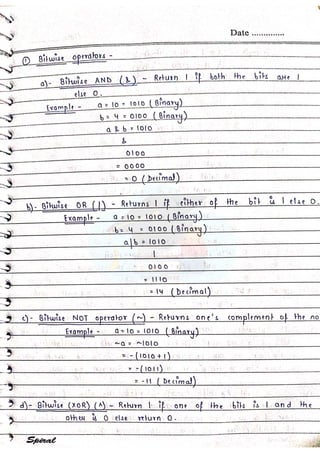 Date ..............
① Bitwise operators -
a)- Bitwise AND (&) - Return 1 if both the bits are 1
else 0.
Example - a = 10 = 1010 (Binary)
b = 4 = 0100 (Binary)
a & b = 1010
&
0100
= 0000
= 0 (Decimal)
b)- Bitwise OR (|) - Returns 1 if either of the bit is 1 else 0.
Example - a = 10 = 1010 (Binary)
b = 4 = 0100 (Binary)
a|b = 1010
|
0100
= 1110
= 14 (Decimal)
c)- Bitwise NOT operator (~) - Returns one's complement of the no
Example - a = 10 = 1010 (Binary)
~a = ~1010
= -(1010+1)
= -(1011)
= -11 (Decimal)
d)- Bitwise (XOR) (^) - Return 1 if one of the bits is 1 and the
other is 0 else return 0.
Spiral